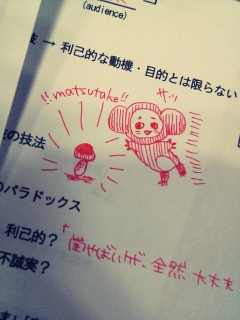 (audience)
→ 利己的な動機・目的とは限らない
!!matsutake!!
サッ
の技法
のパラドックス
利己的？
菌やばいけど、全然大丈夫
不誠実？